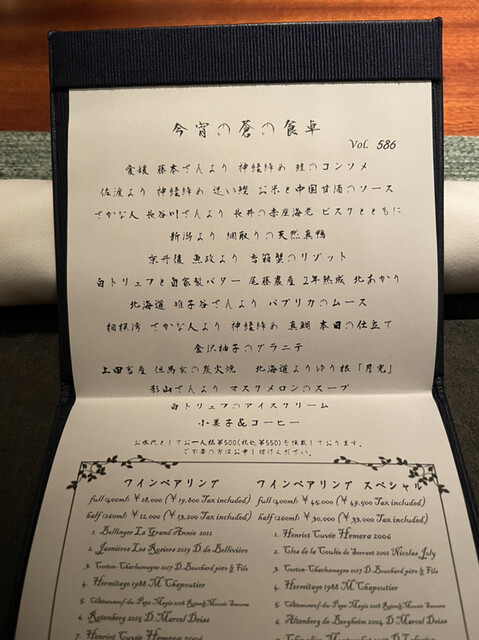 今宵の蒼の食卓
Vol. 586
愛媛 藤本さんより 神経締め 鮭のコンソメ
佐渡より 神経締め 迷い鰹 お米と中国甘酒のソース
さかな人 長谷川さんより 長井の赤座海老 ビスクとともに
新潟より 網取りの天然真鴨
京丹後 魚政より 香箱蟹のリゾット
白トリュフと自家製バター 尾藤農産 2年熟成 北あかり
北海道 雅子谷さんより パプリカのムース
相模湾 さかな人より 神経締め 真鯛 本日の仕立て
金沢柚子のグラニテ
上田畜産 但馬玄の炭火焼 北海道よりゆり根「月光」
影山さんより マスクメロンのスープ
白トリュフのアイスクリーム
小菓子&コーヒー
お水代としてお一人様¥500(税込¥550)を頂戴しております。
ご不要の方はお申し付けください。
ワインペアリング
full(400ml) ¥18,000 (¥19,800 Tax included)
half(260ml) ¥12,000 (¥13,200 Tax included)
1. Bollinger La Grand Année 2012
2. Jasnières Les Rosiers 2019 D. de Bellivière
3. Corton-Charlemagne 2017 D.Bouchard père & Fils
4. Hermitage 1988 M. Chapoutier
5. Châteauneuf-du-Pape Magis 2018
6. Rotenberg 2015 D. Marcel Deiss
7. Henriet Cuvée Hemera 2006
ワインペアリング スペシャル
full(400ml) ¥45,000 (¥49,500 Tax included)
half(260ml) ¥30,000 (¥33,000 Tax included)
1. Henriot Cuvée Hemera 2006
2. Clos de la Coulée de Serrant 2002 Nicolas Joly
3. Corton-Charlemagne 2017 D.Bouchard père & Fils
4. Hermitage 1988 M. Chapoutier
5. Châteauneuf-du-Pape Magis 2018
6. Altenberg de Bergheim 2004 D. Marcel Deiss